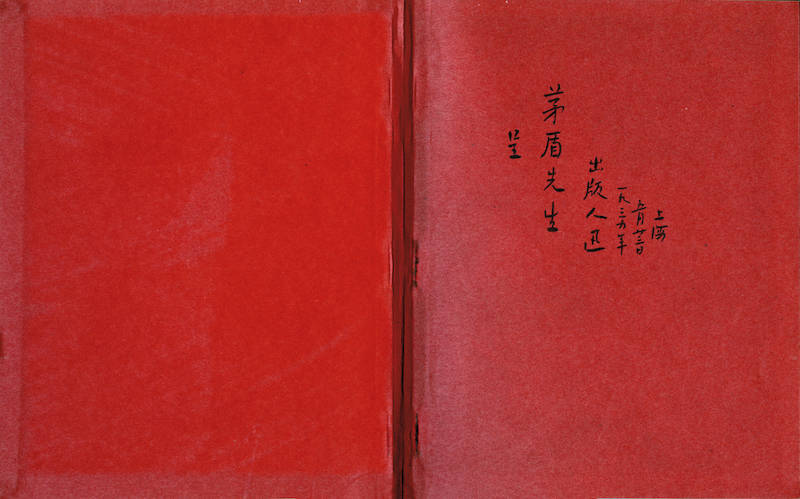 呈
茅盾先生
出版人迅
一九三六年
五月廿三日
上海